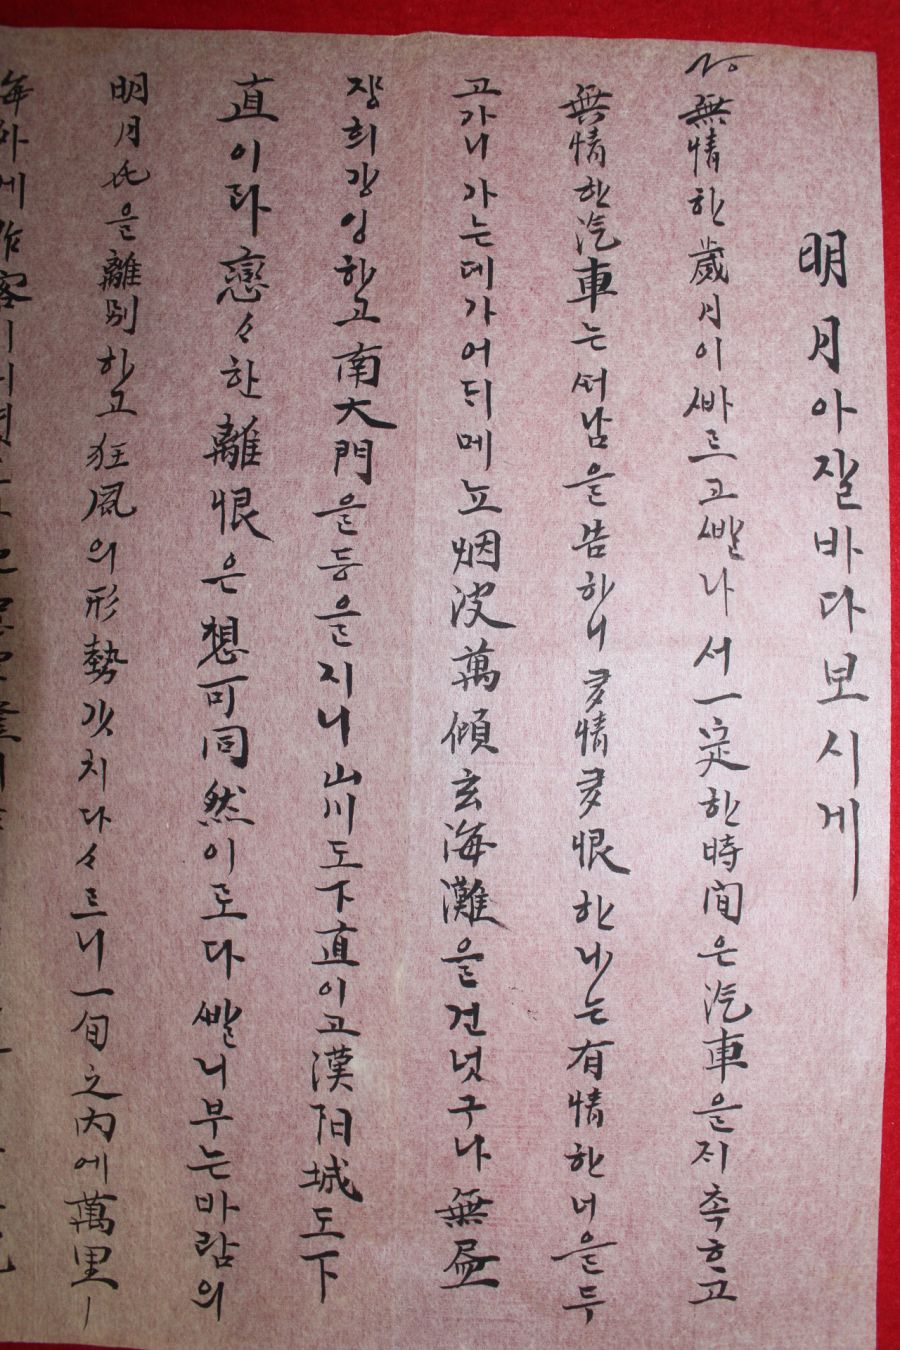 明月아 잘바다보시게
無情한 歲月이 ᄲᅡ르고 ᄲᅡᆯ나서 一定한 時間은 汽車을 지촉ᄒᆞ고
無情한 汽車는 ᄯᅥ남을 告하니 多情多恨한 나는 有情한 너을 두
고 가니 가는데가 어듸메뇨 烟波萬傾 玄海灘을 건넛구나 無
쟝희강잉하고 南大門을 등을 지니 山川도 下直이고 漢陽城도 下
直이라 戀々한 離恨은 想可同然이로다 ᄲᅡᆯ니 부는 바람의
明月氏을 離別하고 狂風의 形勢갓치 다々르니 一旬之內에 萬里
海外에 作客이